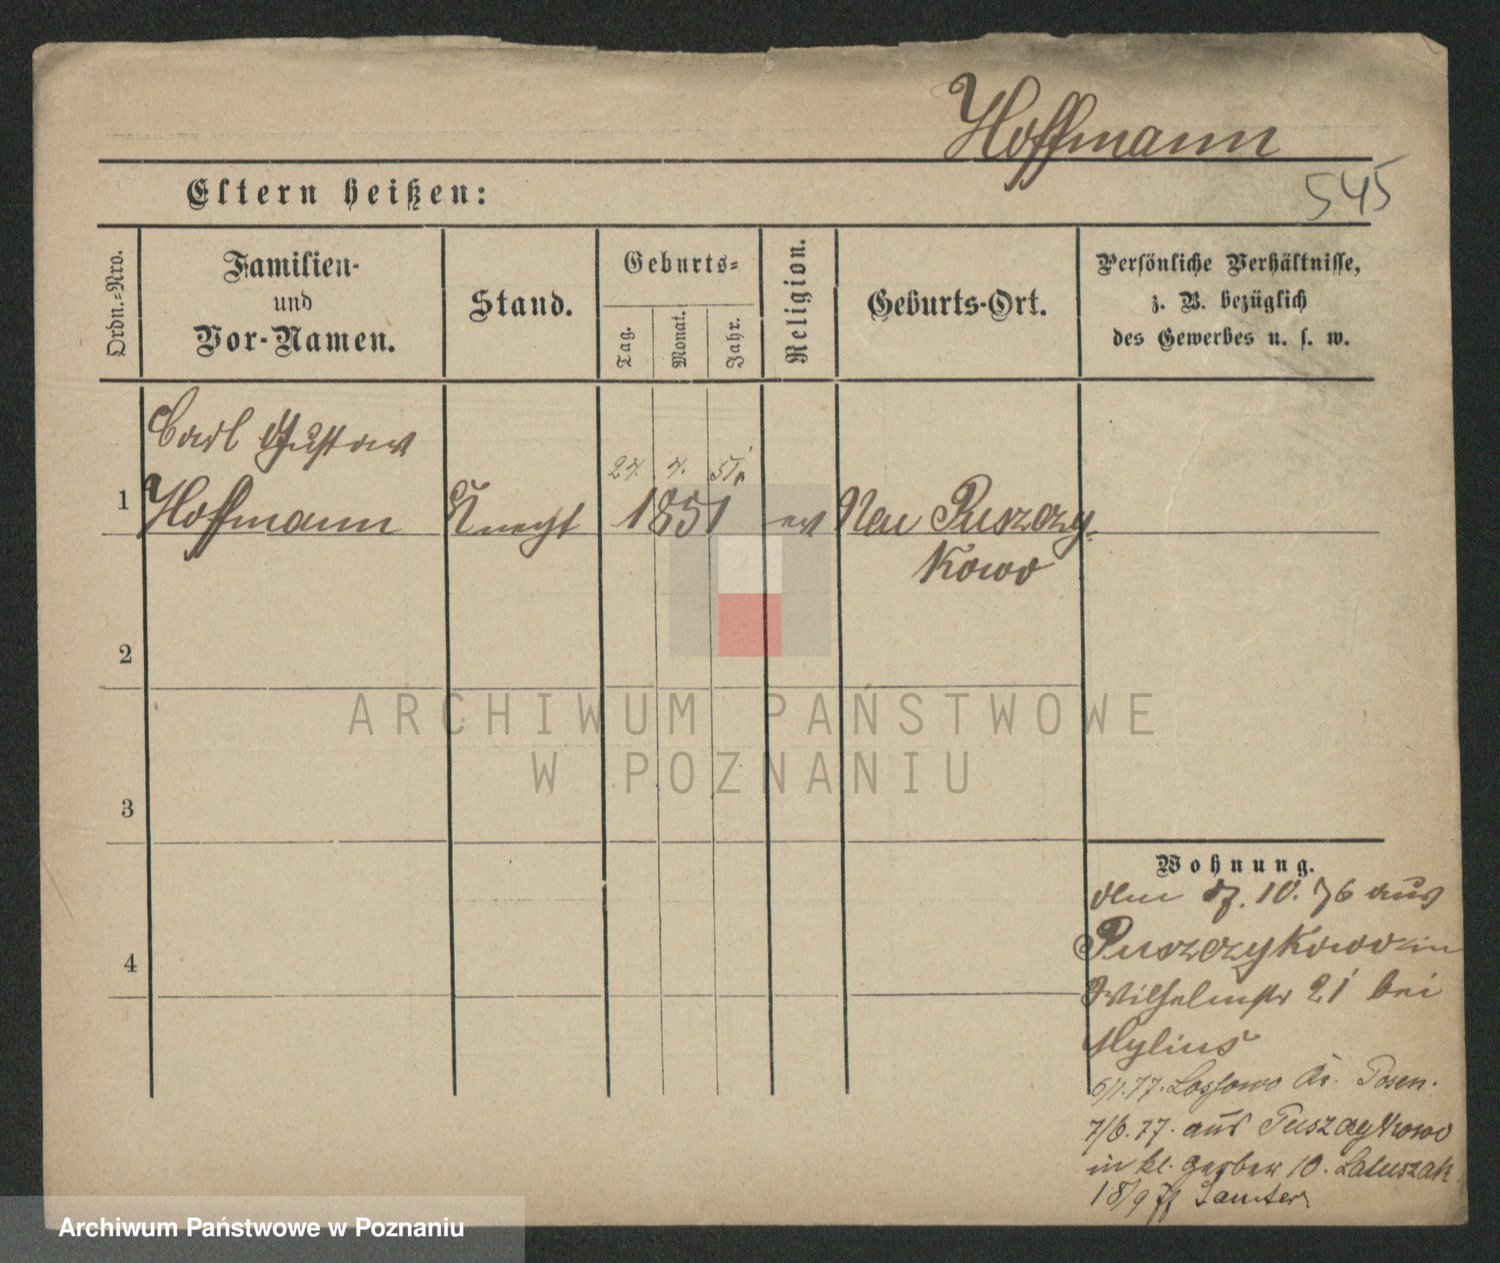 Hoffmann
545
Eltern heißen:
Ordn.-Nro.
Familien-
und
Vor-Namen.
Stand.
Geburts-
Tag.
Monat.
Jahr.
Religion.
Geburts-Ort.
Persönliche Verhältnisse,
z. B. bezüglich
des Gewerbes u. s. w.
Carl Gustav
24. 4. 51.
1 Hoffmann Knecht 1851 ev Neu Puszczy-
kowo
2
3
4
ARCHIWUM PAŃSTWOWE
W POZNANIU
Wohnung.
den 10. 76 aus
Puszczykowo in
Wilhelmstr 21 bei
Mylius
6/1. 77. Lossowo Kr. Posen.
7/6. 77. aus Puszczykowo
in kl. Gerber 10. Laluszak
18/9 77 Samter
Archiwum Państwowe w Poznaniu